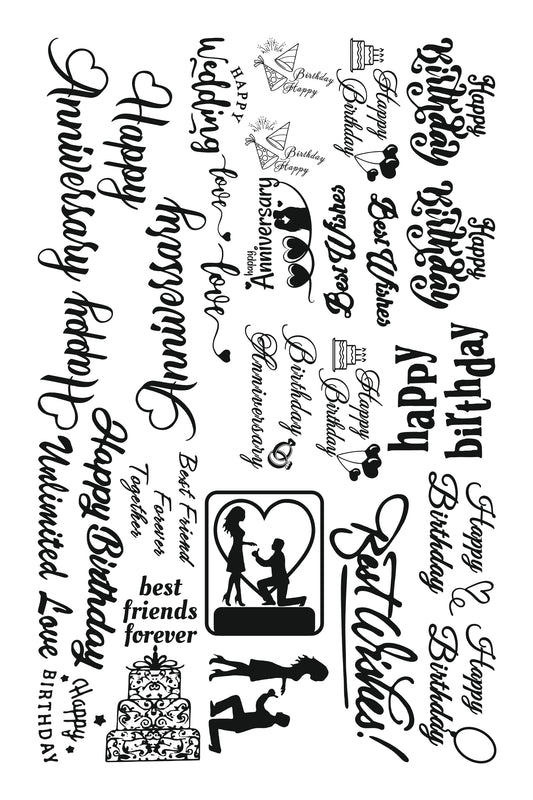 Happy
Birthday
Happy
Birthday
happy
birthday
Happy
Birthday
Happy
Birthday
Happy
Birthday
Best Wishes
Best Wishes
Happy
Birthday
Best Wishes!
Birthday
Happy
Birthday
Happy
happy
Anniversary
Birthday
Anniversary
HAPPY
Wedding
love
love
Happy
Anniversary
Best Friend
Forever
Together
best
friends
forever
Anniversary
Happy
Happy Birthday
Unlimited Love
Happy
BIRTHDAY